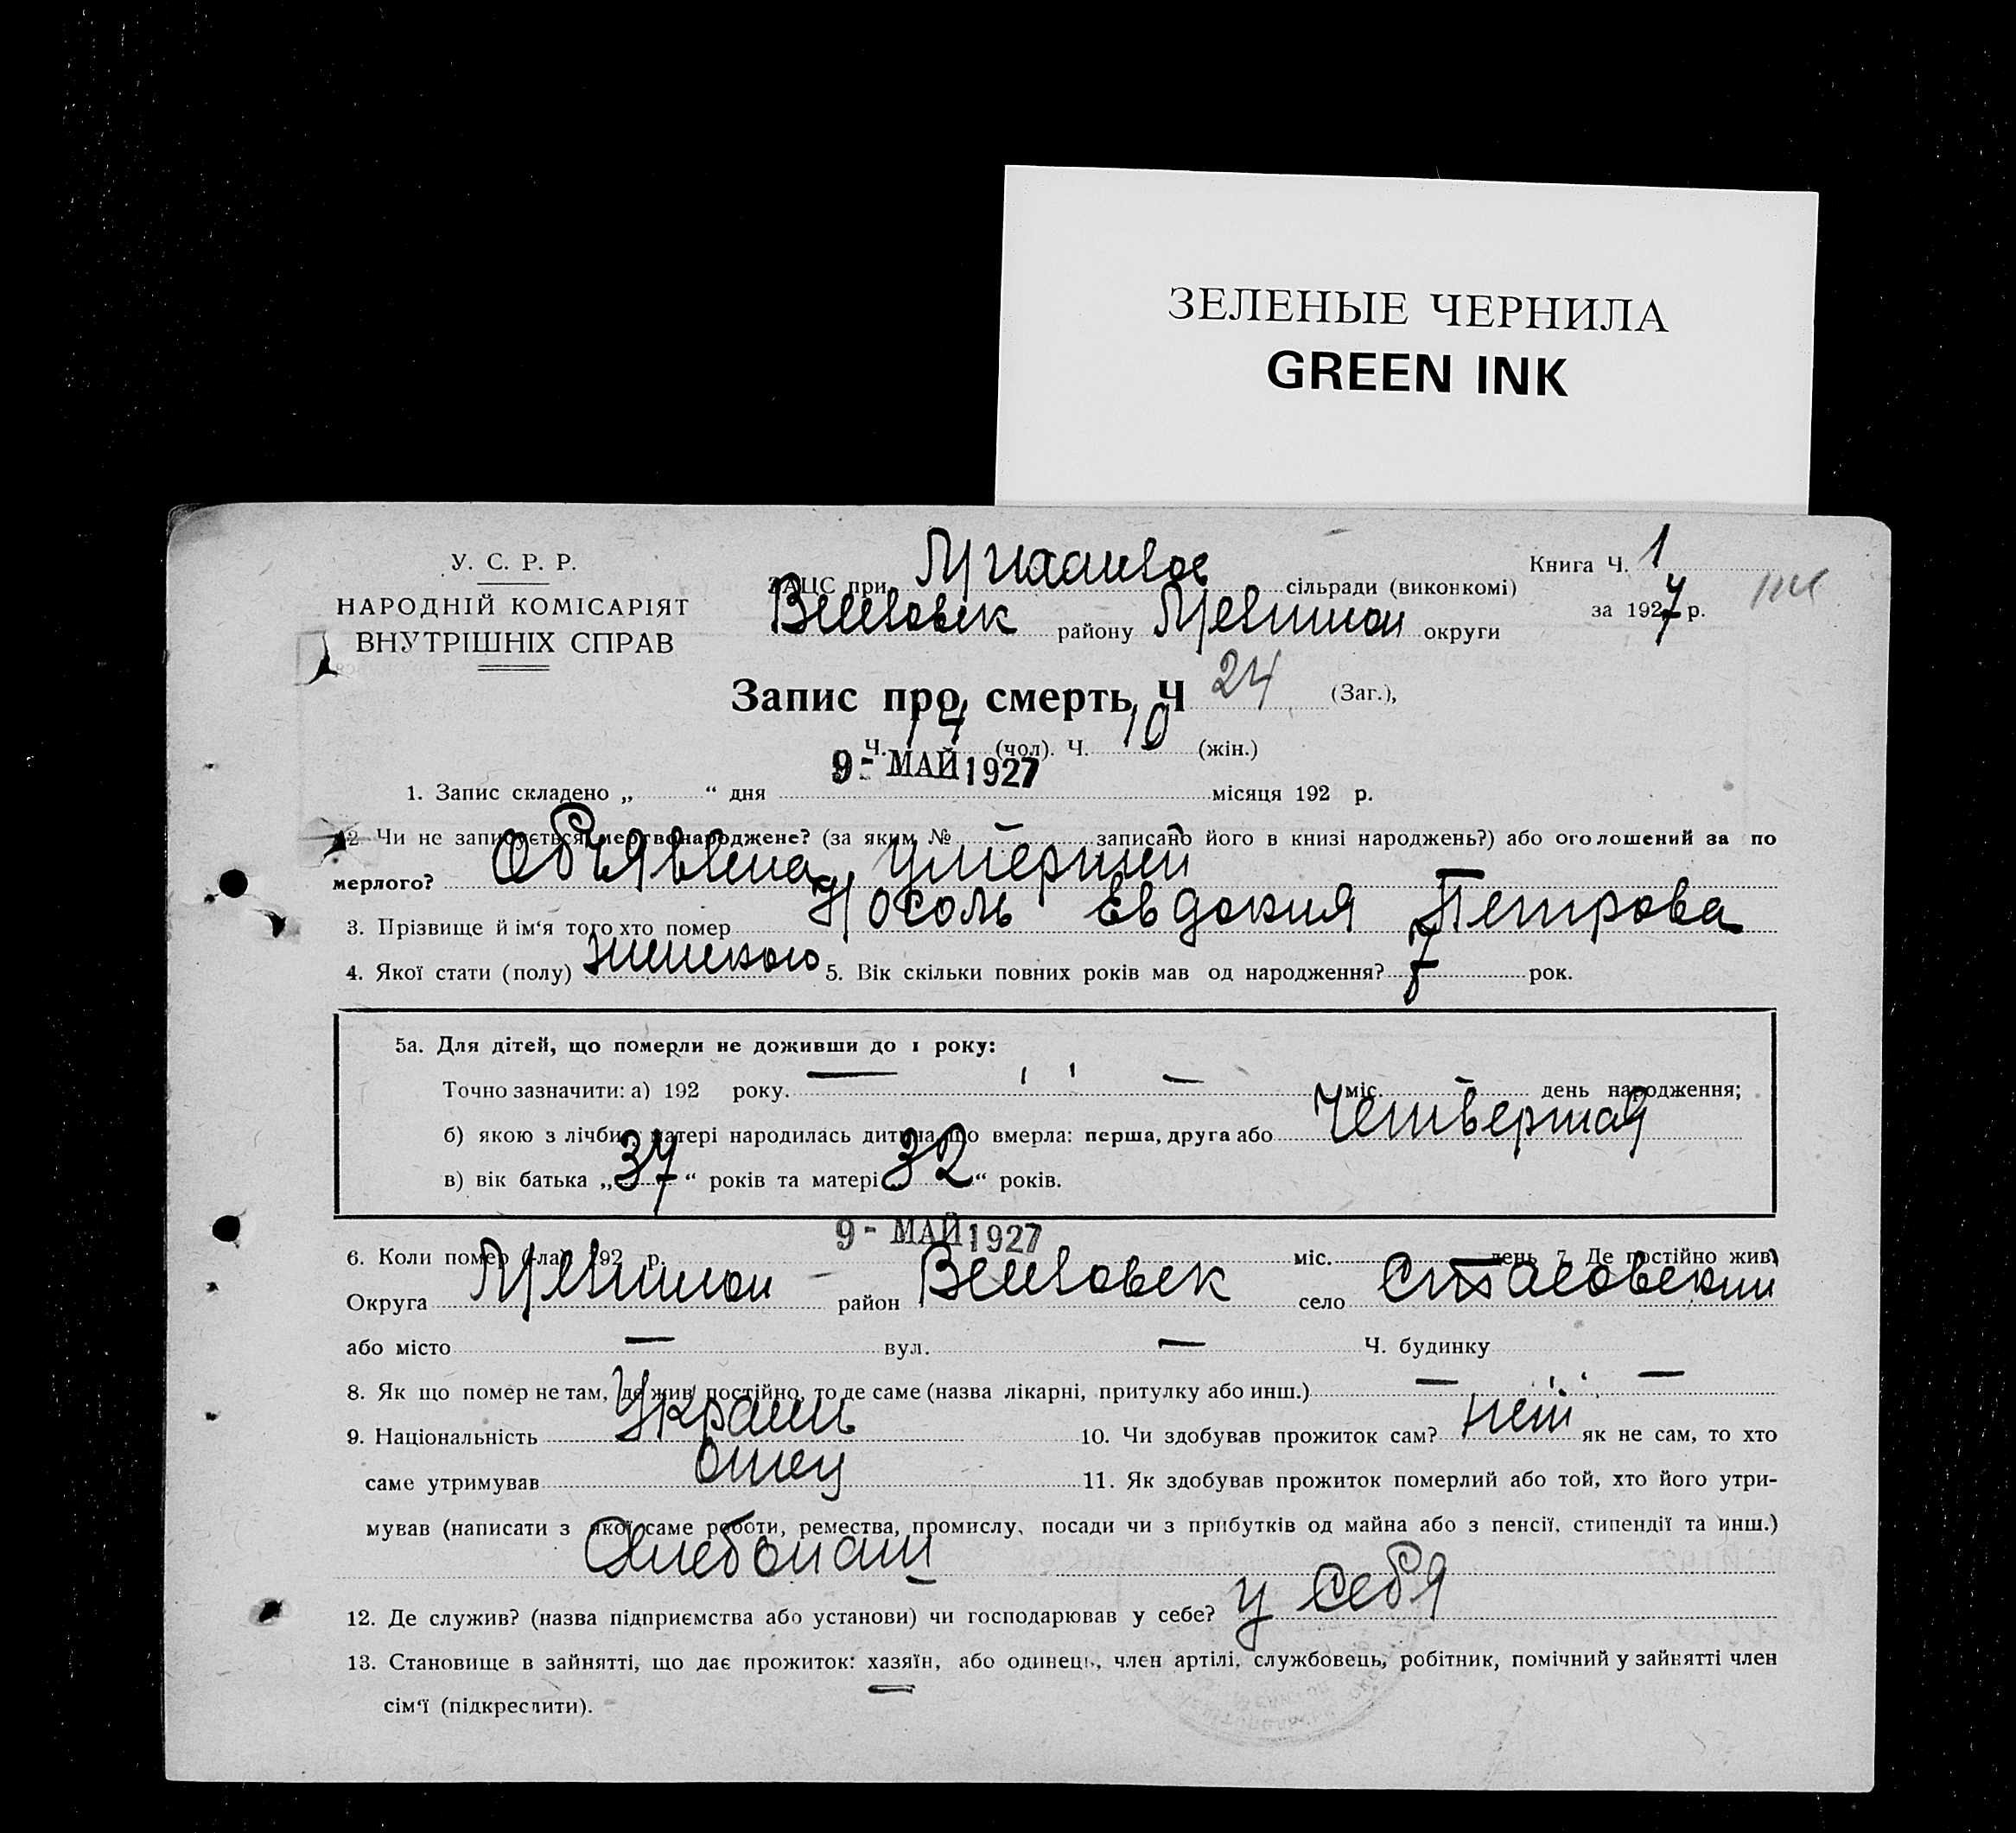 ЗЕЛЕНЫЕ ЧЕРНИЛА
GREEN INK
У. С. Р. Р.
НАРОДНІЙ КОМІСАРІЯТ
ВНУТРІШНІХ СПРАВ
ЗАЦС при Михайлов сільради (виконкомі)
Книга Ч. 1
за 1927 р.
району округи
Запис про смерть Ч 24 (Заг.),
Ч. 14 (чол). Ч. 10 (жін.)
9 - МАЙ 1927
1. Запис складено „ “ дня місяця 192 р.
2. Чи не записується мертвонароджене? (за яким № — записано його в книзі народжень?) або оголошений за по
мерлого? Объявлена умершей
3. Прізвище й ім‘я того хто помер Носоль Евдокия Петрова
4. Якої стати (полу) женского 5. Вік скільки повних років мав од народження? 7 рок.
5а. Для дітей, що померли не доживши до 1 року:
Точно зазначити: а) 192 року. — " — міс. — день народження;
б) якою з лічби у матері народилась дитина що вмерла: перша, друга або Четвертая
в) вік батька „37“ років та матері „32“ років.
9 - МАЙ 1927
6. Коли помер (-ла) 192 р. міс. день 7. Де постійно жив:
Округа район село
або місто — вул. — Ч. будинку
8. Як що помер не там, де жив постійно, то де саме (назва лікарні, притулку або инш.) — " —
9. Національність Украин 10. Чи здобував прожиток сам? нет як не сам, то хто
саме утримував отец 11. Як здобував прожиток померлий або той, хто його утри-
мував (написати з якої саме роботи, ремества, промислу, посади чи з прибутків од майна або з пенсії, стипендії та инш.)
Хлебопаш
12. Де служив? (назва підприємства або установи) чи господарював у себе? у себя
13. Становище в зайнятті, що дає прожиток: хазяїн, або одинець, член артілі, службовець, робітник, помічний у зайнятті член
сім‘ї (підкреслити).